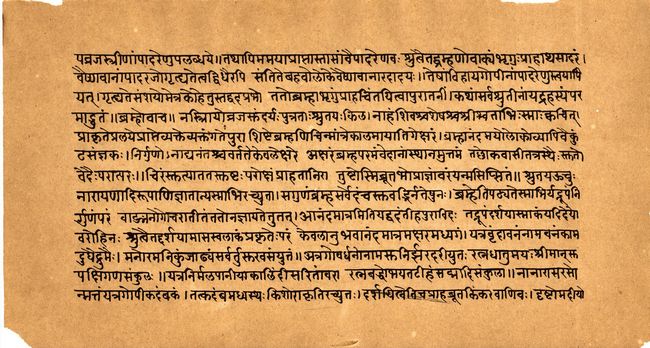 यव्रजस्त्रीणांपादरेणुपलब्धये॥तथापिमयाप्राप्तास्तासांवैपादरेणवः श्रुत्वैतद्ब्रह्मणोवाक्यंभृगुःप्राहाथसादरं।
वैष्णवानांपादरजोगृत्द्यतेत्वद्विधैरपि संतितेबहवोलोकेवैष्णवानारदादयः॥तेषांविहायगोपीनांपादरेणुस्त्वयापि
यत्।गृत्द्यतेसंशयोमेत्रकोहेतुस्तद्वदप्रभो ततोब्रम्हाभृगुंप्राहचिंतयित्वापुरातनीं।कथांसर्वश्रुतीनांयद्रहस्यंपर
माद्भुतं॥ब्रम्होवाच॥नस्त्रियोव्रजसुंदर्यःपुत्रताःश्रुतयःकिल।नाहंशिवश्चशेषश्चश्रीश्चताभिःसमाःक्वचित्
प्राकृतेप्रलयेप्राप्तेव्यक्तेव्यक्तंगतेपुरा शिष्टेब्रह्मणिचिन्मात्रेकालमायातिगेक्षरं।ब्रह्मानंदमयोलोकोव्यापिवैकुं
ठसंज्ञकः।निर्गुणोनाद्यनंतश्चवर्ततेकेवलेक्षरे अक्षरंब्रम्हपरमंवेदानांस्थानमुत्तमं तल्लोकवासीतत्रस्थैःस्तुतो
वेदैःपरात्परः।चिरंस्तुत्याततस्तुष्टःपरोक्षंप्राहतान्गिरा तुष्टोस्मिब्रूतभोप्राज्ञावरंयन्मसिप्सितं॥श्रुतयऊचुः
नारायणादिरूपाणिज्ञातान्यस्माभिरच्युत।सगुणंब्रम्हसर्वेदंवस्तुबुद्धिर्नतेपुनः।ब्रम्हेतिपठ्यतेस्माभिर्यद्रूपंनि
र्गुणंपरं वाङ्मनोगोचरातीतंततोनज्ञायतेतुतत्।आनंदमात्रमितियद्वदंतीहपुराविदः तद्रूपंदर्शयास्माकंयदिदेयो
वरोहिनः श्रुत्वैतद्दर्शयामासस्वलोकंप्रकृतेःपरं केवलानुभवानंदमात्रमक्षरमध्यगं।यत्रवृंदावनंनामवनंकाम
दुघैर्द्रुमैः।मनोरमनिकुंजाढ्यंसर्वर्तुसुखसंयुतं॥यत्रगोवर्धनोनामसुनिर्झरदरीयुतः रत्नधातुमयःश्रीमान्सु
पक्षिगणसंकुलः॥यत्रनिर्मलपानीयाकालिंदीसरितांवरा रत्नबद्धोभयतटीहंसपद्मादिसंकुला॥नानारासरसो
न्मत्तंयत्रगोपीकदंबकं।तत्कदंबमध्यस्थःकिशोराकृतिरच्युतः।दर्शयित्वेतिचप्राहब्रूतकिंकरवाणिवः।दृष्टोमदीयो